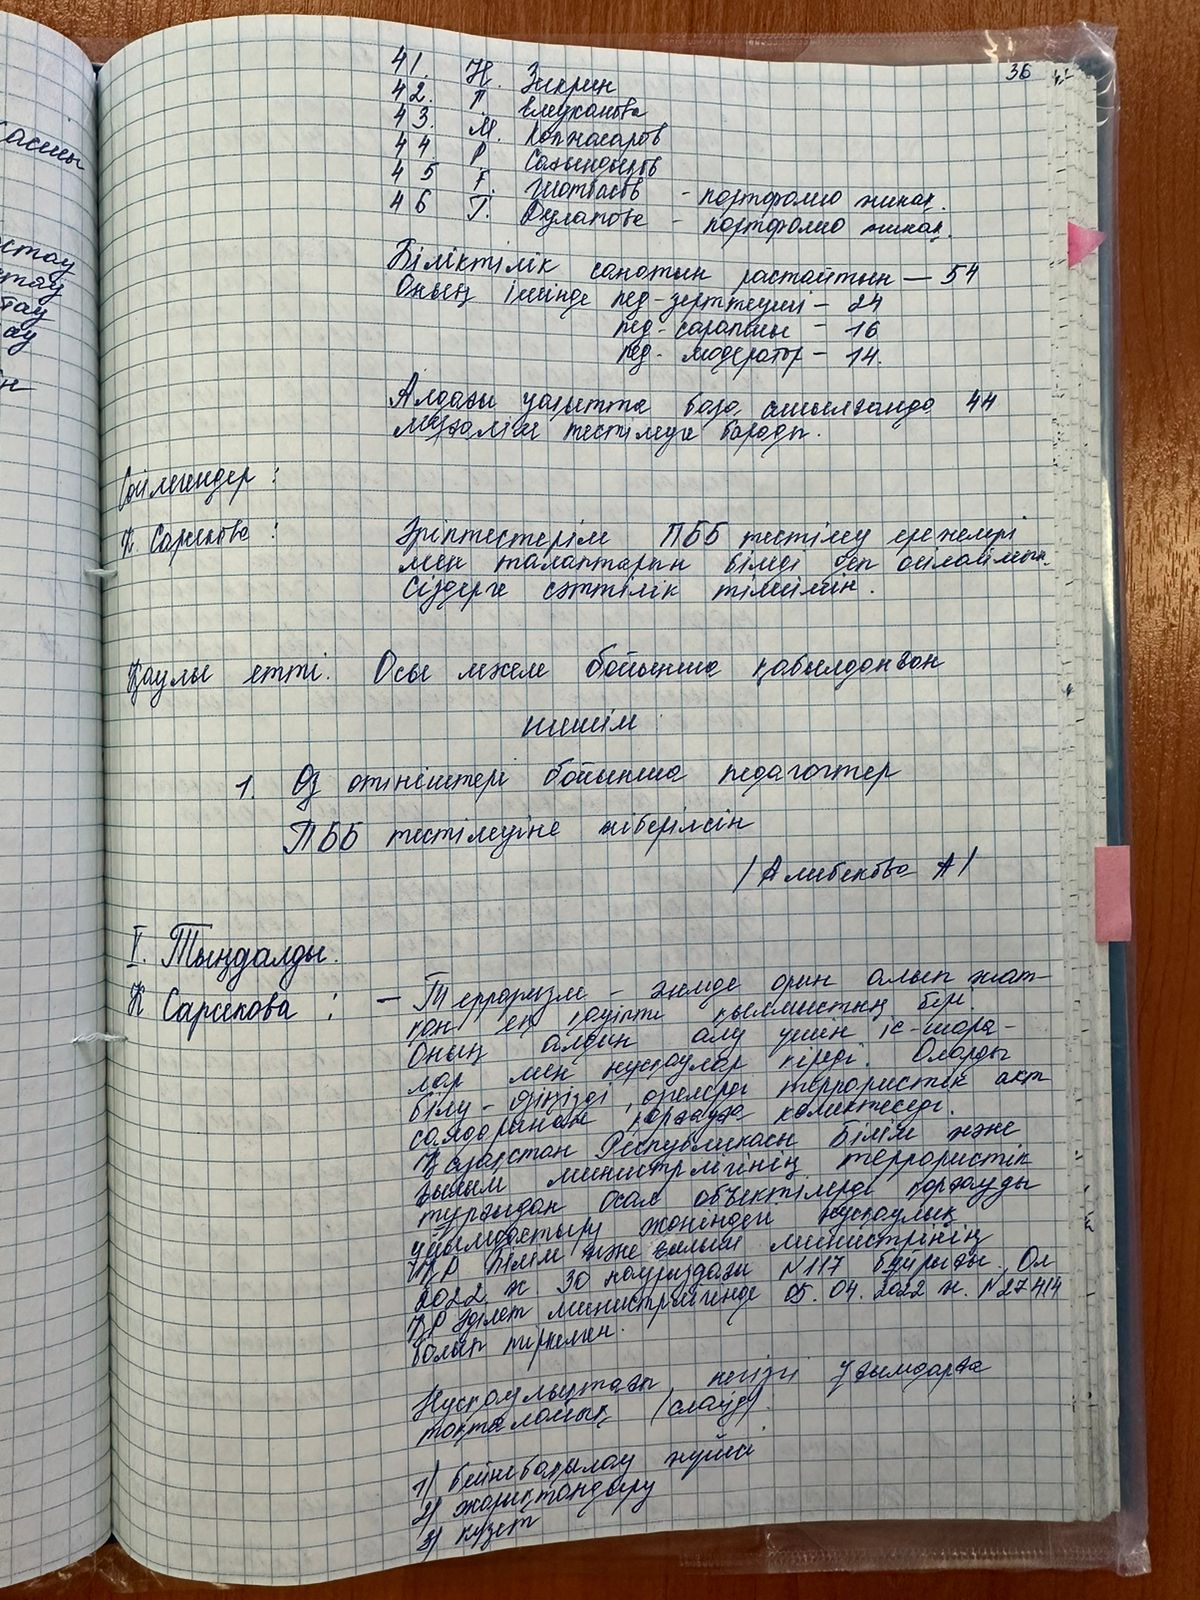 36
41. Н. Зикрин
42. Т. Емуханова
43. М. Копжасаров
44. Р. Сағындықов
45 Г. Шотбаев - портфолио жинақ.
46 Г. Дулатова - портфолио жинақ.
Біліктілік санатын растайтын — 54
Оның ішінде пед-зерттеуші - 24
пед-сарапшы - 16
пед- модератор - 14.
Алдағы уақытта база ашылғанда 44
мұғалім тестілеуге барады.
Сөйлегендер :
К. Сарсекова : Әріптестерім ПББ тестілеу ережелері
мен талаптарын біледі деп ойлаймын.
Сіздерге сәттілік тілеймін.
Қаулы етті. Осы мәселе бойынша қабылданған
шешім
1. Өз өтініштері бойынша педагогтер
ПББ тестілеуіне жіберілсін
/Алибекова А/
V. Тыңдалды.
К Сарсекова : - Терроризм - әлемде орын алып жат-
қан ең қауіпті қылмыстың бірі.
Оның алдын алу үшін іс-шара-
лар мен нұсқаулар кіреді. Оларды
білу - өзіңізді, өзгелерді террористік акт
салдарынан қорғауға көмектеседі.
Қазақстан Республикасы Білім және
ғылым министрлігінің террористік
тұрғыдан осал объектілерді қорғауды
ұйымдастыру жөніндегі нұсқаулық
ҚР Білім және ғылым министрінің
2022 ж. 30 наурыздағы N117 бұйрығы. Ол
ҚР Әділет министрлігінде 05.04.2022 ж. N27414
болып тіркелген.
Нұсқаулықтағы негізгі ұғымдарға
тоқталайық (слайд).
1) бейнебақылау жүйесі
2) жарықтандыру
3) күзет
астау
тау
ау
ін